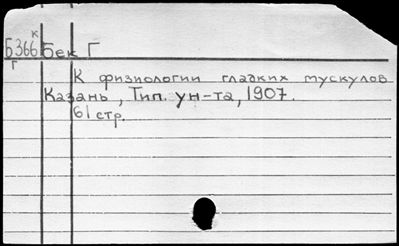 к
Б366 Бек Г
г
К физиологии гладких мускулов
Казань, Тип. ун-та, 1907.
61 стр.